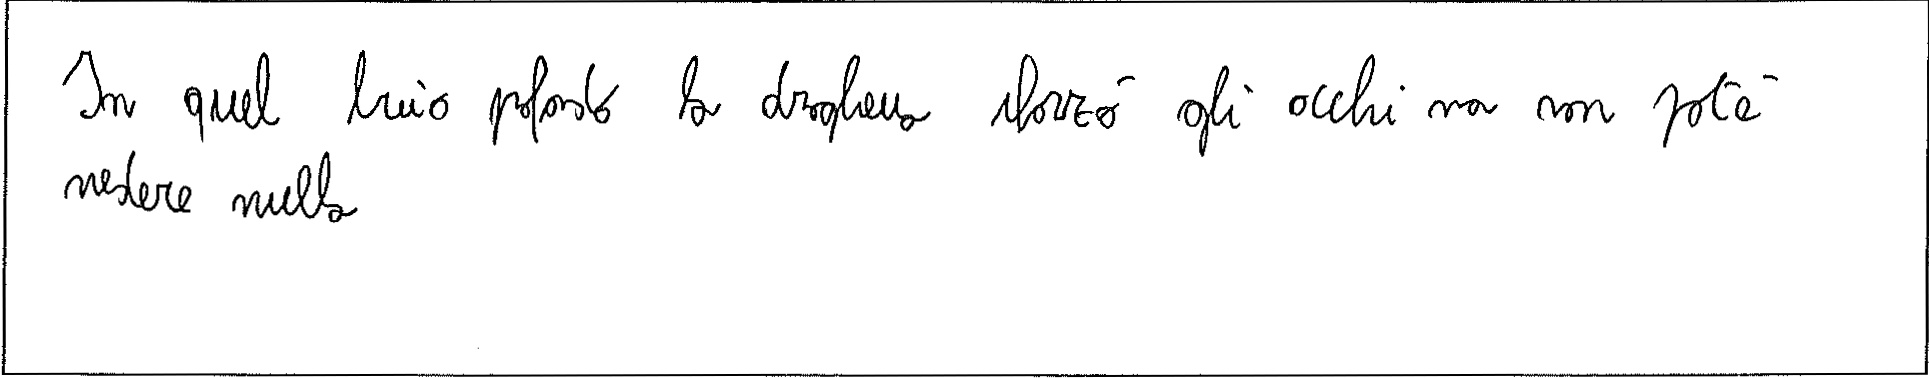 In quel buio profondo la droghera sforzò gli occhi ma non potè
vedere nulla